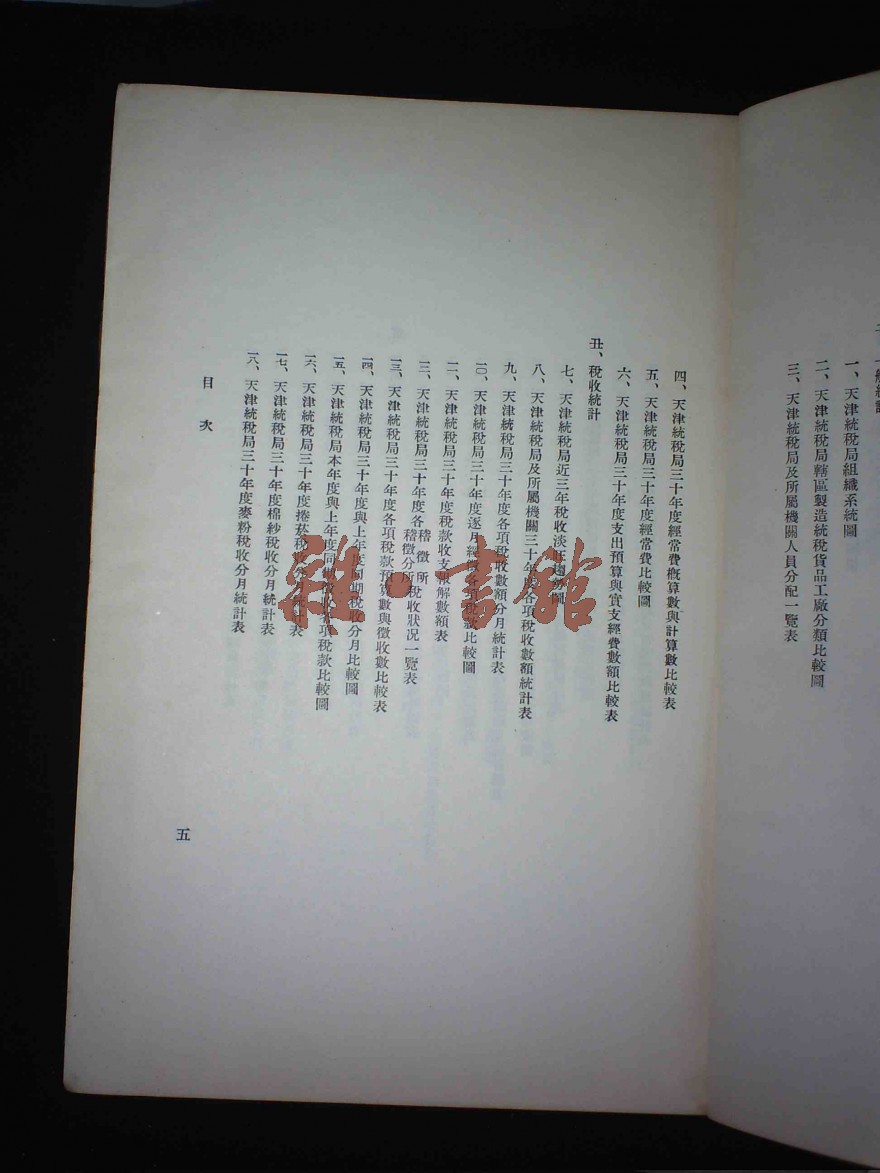 一、天津統稅局組織系統圖
二、天津統稅局轄區製造統稅貨品工廠分類比較圖
三、天津統稅局及所屬機關人員分配一覽表
四、天津統稅局三十年度經常費概算數與計算數比較表
五、天津統稅局三十年度經常費比較圖
六、天津統稅局三十年度支出預算與實支經費數額比較表
丑、稅收統計
七、天津統稅局近三年稅收淡旺趨勢圖
八、天津統稅局及所屬機關三十年度各項稅收數額統計表
九、天津統稅局三十年度各項稅收數額分月統計表
一〇、天津統稅局三十年度逐月經徵各項稅款比較圖
一一、天津統稅局三十年度稅款收支報解數額表
一二、天津統稅局三十年度各稽徵所稽徵分所稅收狀况一覽表
一三、天津統稅局三十年度各項稅款預算數與徵收數比較表
一四、天津統稅局三十年度與上年度同期稅收分月比較圖
一五、天津統稅局本年度與上年度同期各項稅款比較圖
一六、天津統稅局三十年度捲菸稅收分月統計表
一七、天津統稅局三十年度棉紗稅收分月統計表
一八、天津統稅局三十年度麥粉稅收分月統計表
目次
五
雜·書館